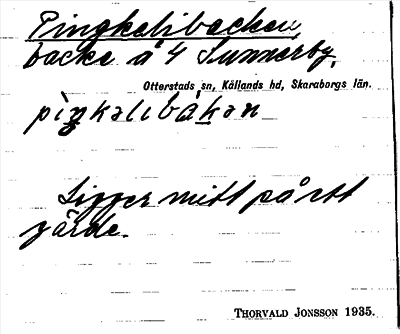 Pingkalibacken,
backe å 4 Sunnerby,
Otterstads sn, Kållands hd, Skaraborgs län.
pìŋkalibákan
Ligger mitt på ett
gärde.
THORVALD JONSSON 1935.